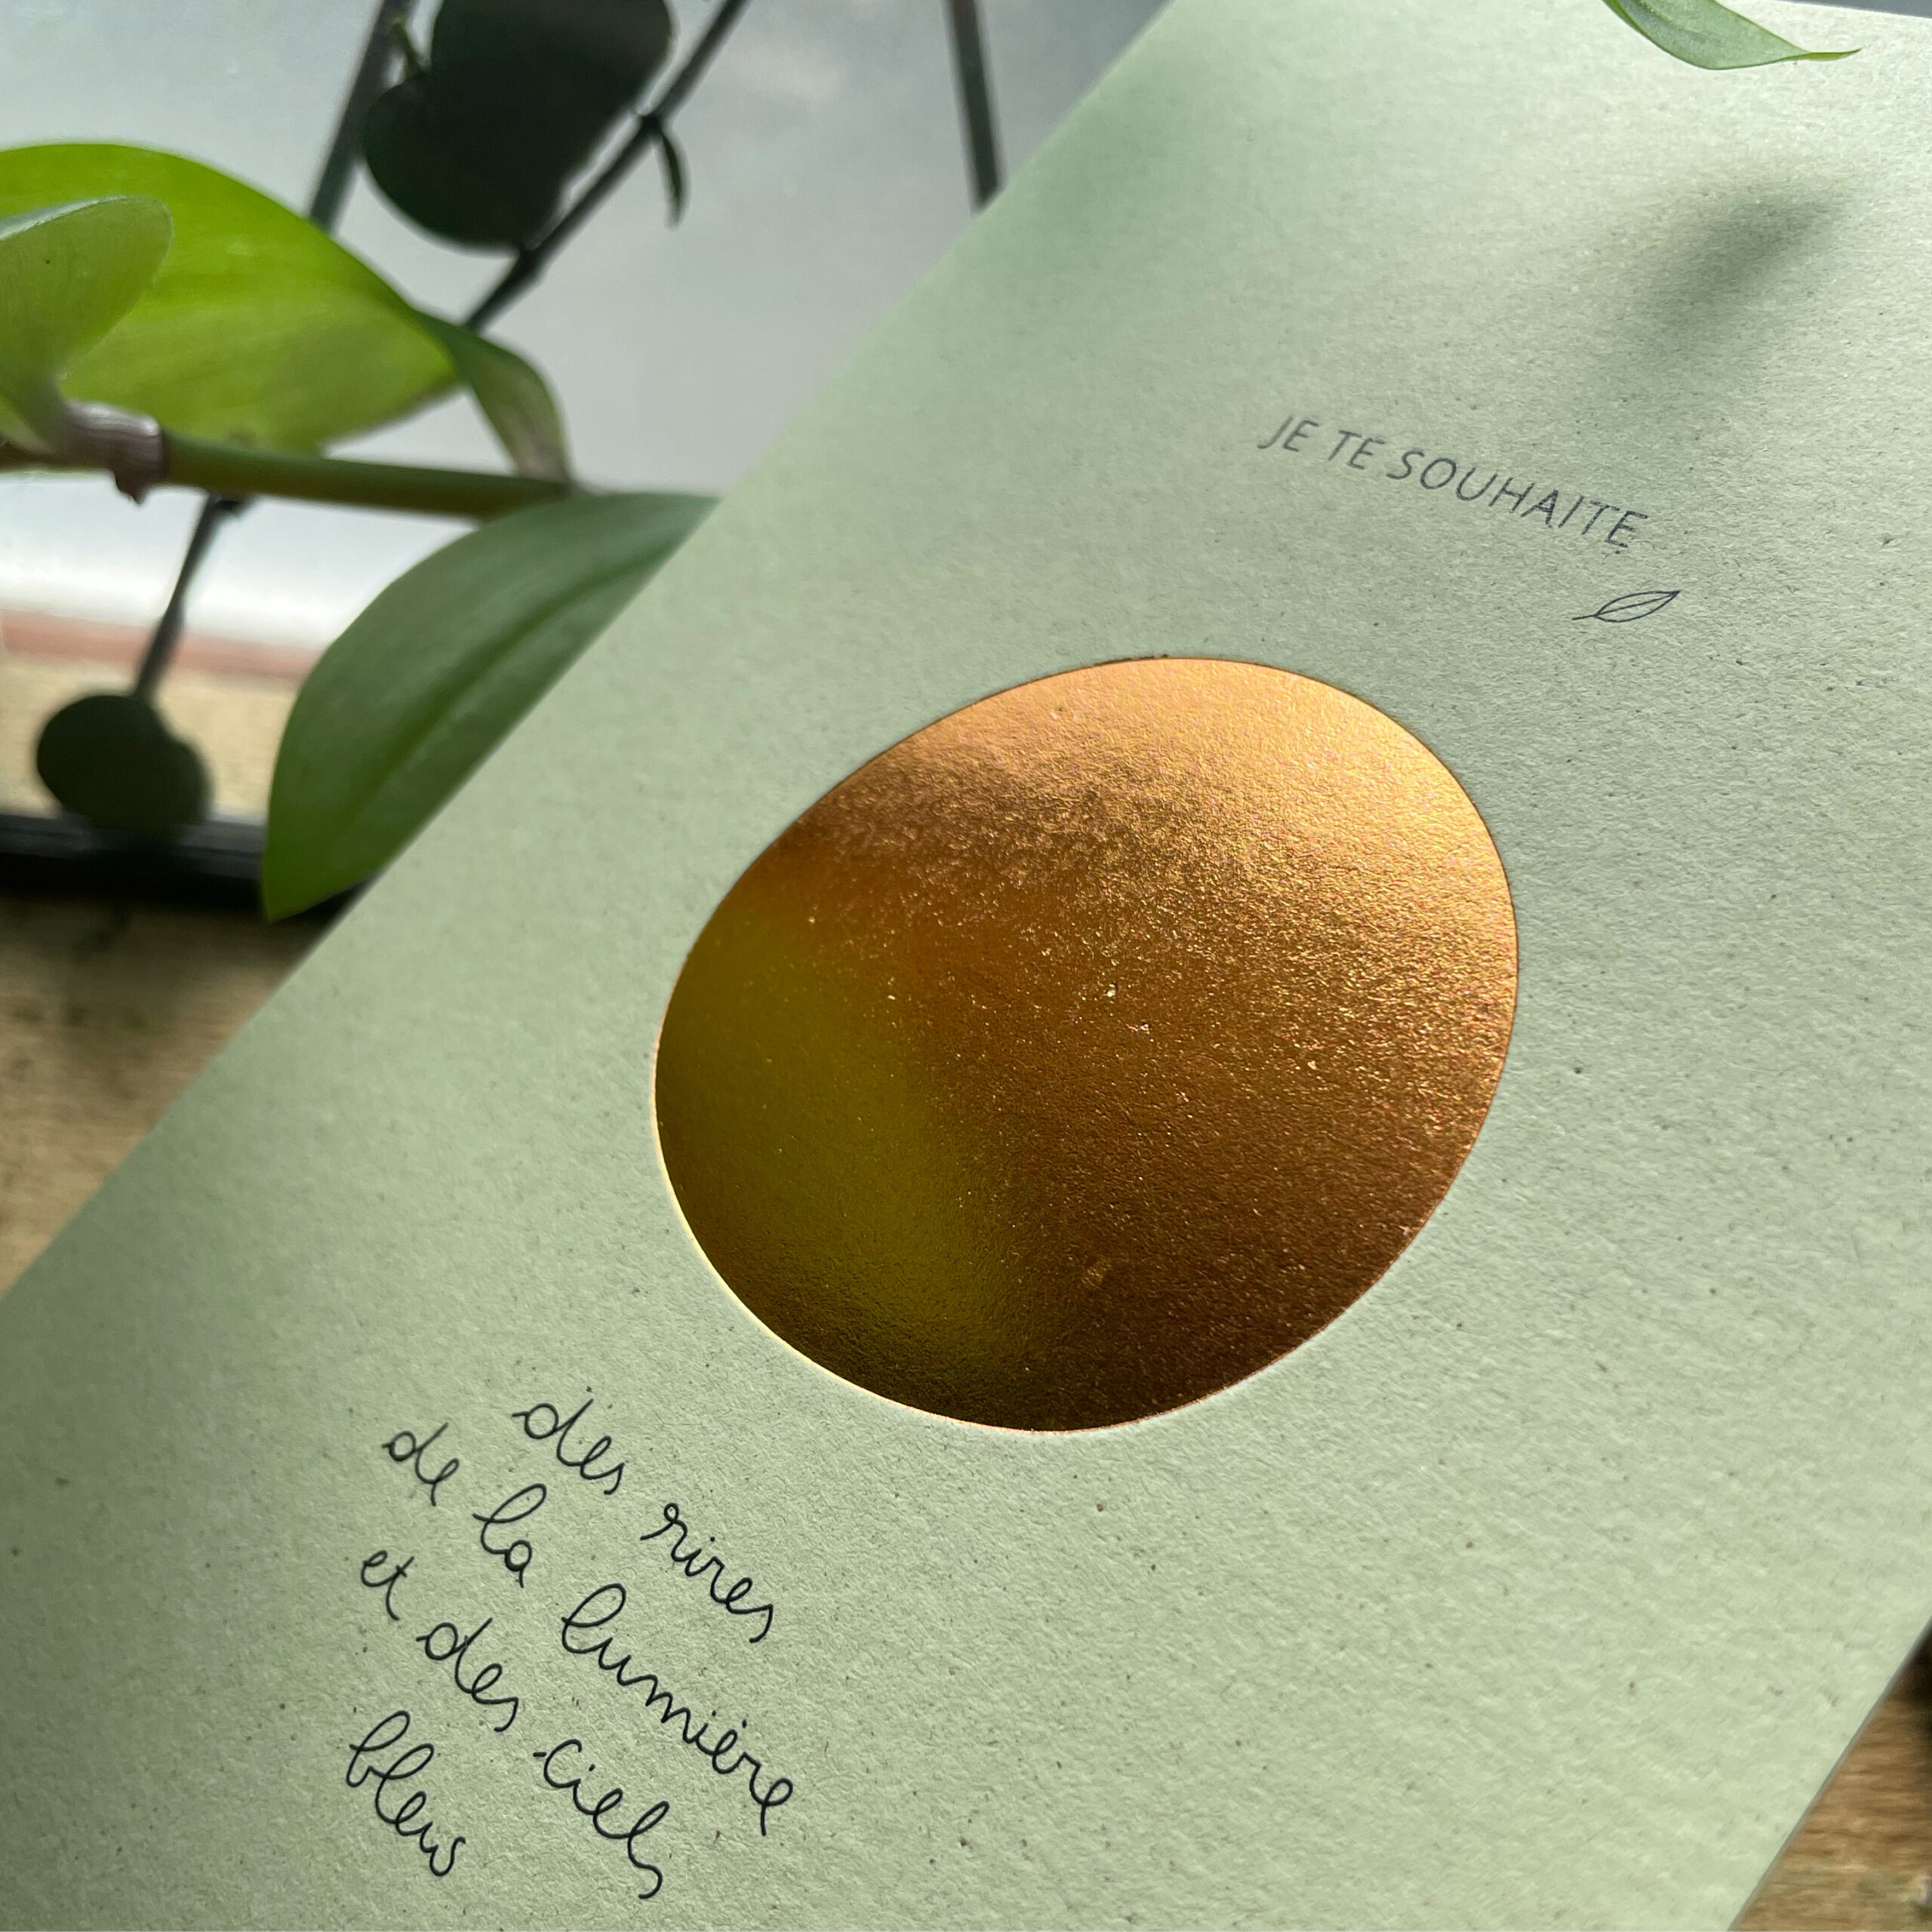 JE TE SOUHAITE
des rires
de la lumière
et des ciels
bleus